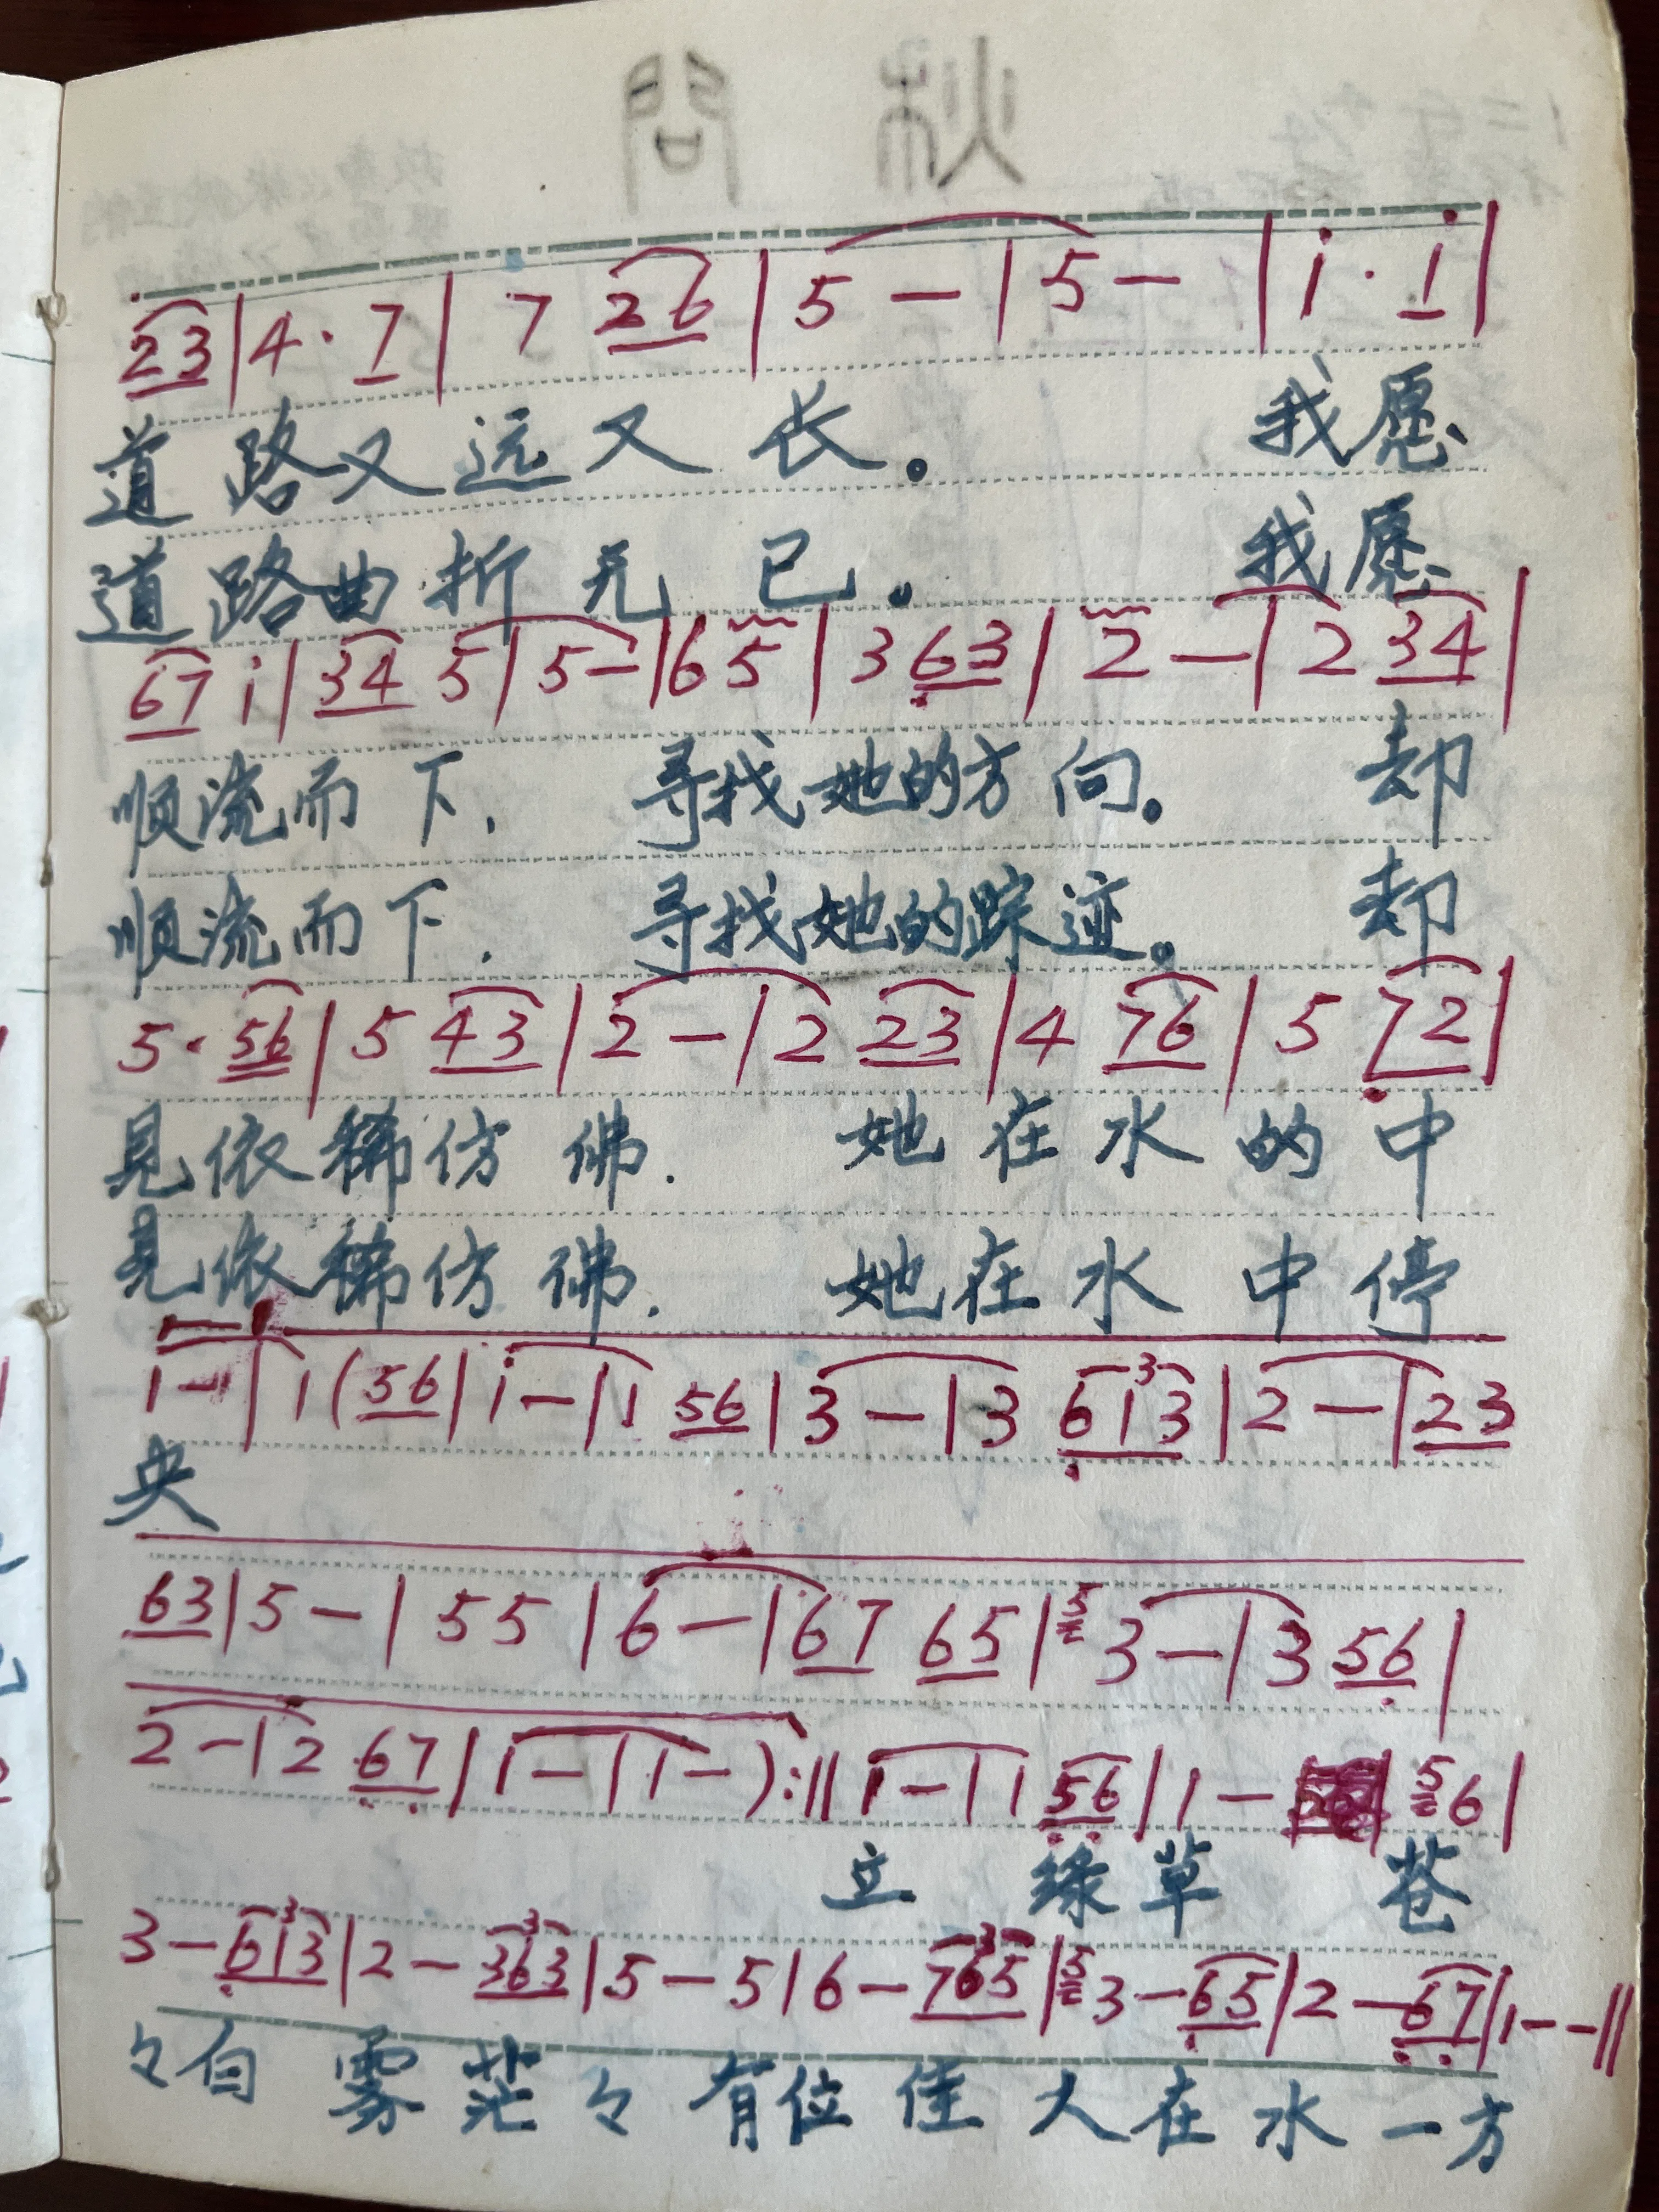 23|4·7|7 26|5—|5—|i·i|
道路又远又长。 我愿
道路曲折无已。 我愿
67 i|34 5|5—|6 5|3 63|2—|2 34|
顺流而下, 寻找她的方向。 却
顺流而下. 寻找她的踪迹。 却
5·56|5 43|2—|2 23|4 76|5 72|
见依稀仿佛. 她在水的中
見依稀仿佛. 她在水中停
1—|1(56|i—|1 56|3—|3 613|2—|23
央
63|5—|55|6—|67 65|5 3—|3 56|
2—|2 67|1—|1—):||1—|1 56|1—|5 6|
立 绿草 苍
3—613|2—363|5—5|6—765|5 3—65|2—67|1——||
々白雾茫々有位佳人在水一方